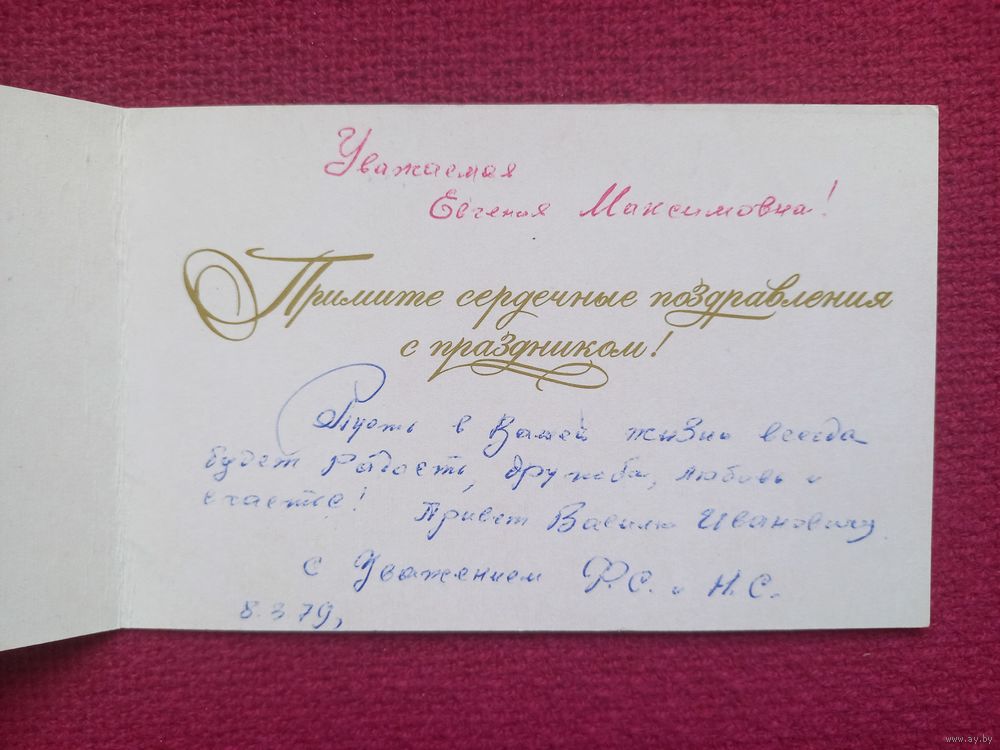 Уважаемая
Евгения Максимовна!
Примите сердечные поздравления
с праздником!
Пусть в Вашей жизни всегда
будет радость, дружба, любовь и
счастье! Привет Василию Ивановичу
с Уважением Р.С. и Н.С.
8.3.79,
www.ay.by